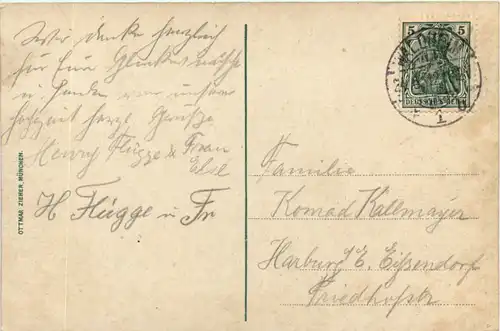 Wir danken herzlich
für Eure Glückwünsche
u senden von unserer
Hochzeit herzl Grüsse
Henry Flügge u Frau
H Flügge u Fr
OTTMAR ZIEHER, MÜNCHEN.
5 5
DEUTSCHES REICH
1
Familie
Konrad Kallmayer
Harburg a/E. Eißendorf
Friedhofstr